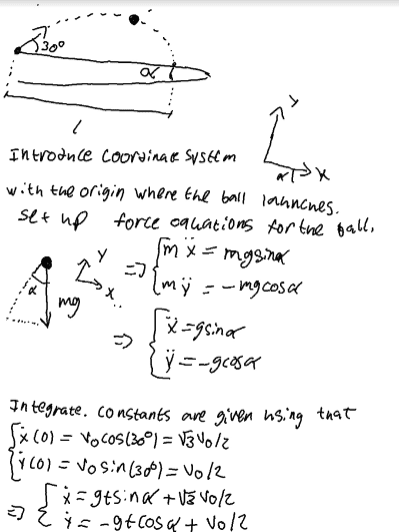 30°
α
l
y
x
α
Introduce coordinate system
with the origin where the ball launches.
set up force equations for the ball.
y
x
α
mg
⇒ { mẍ = mg sinα
mÿ = -mg cosα
⇒ { ẍ = g sinα
ÿ = -g cosα
Integrate. constants are given using that
{ ẋ(0) = v₀cos(30°) = √3 v₀/2
ẏ(0) = v₀ sin(30°) = v₀/2
⇒ { ẋ = gt sinα + √3 v₀/2
ẏ = -gt cosα + v₀/2